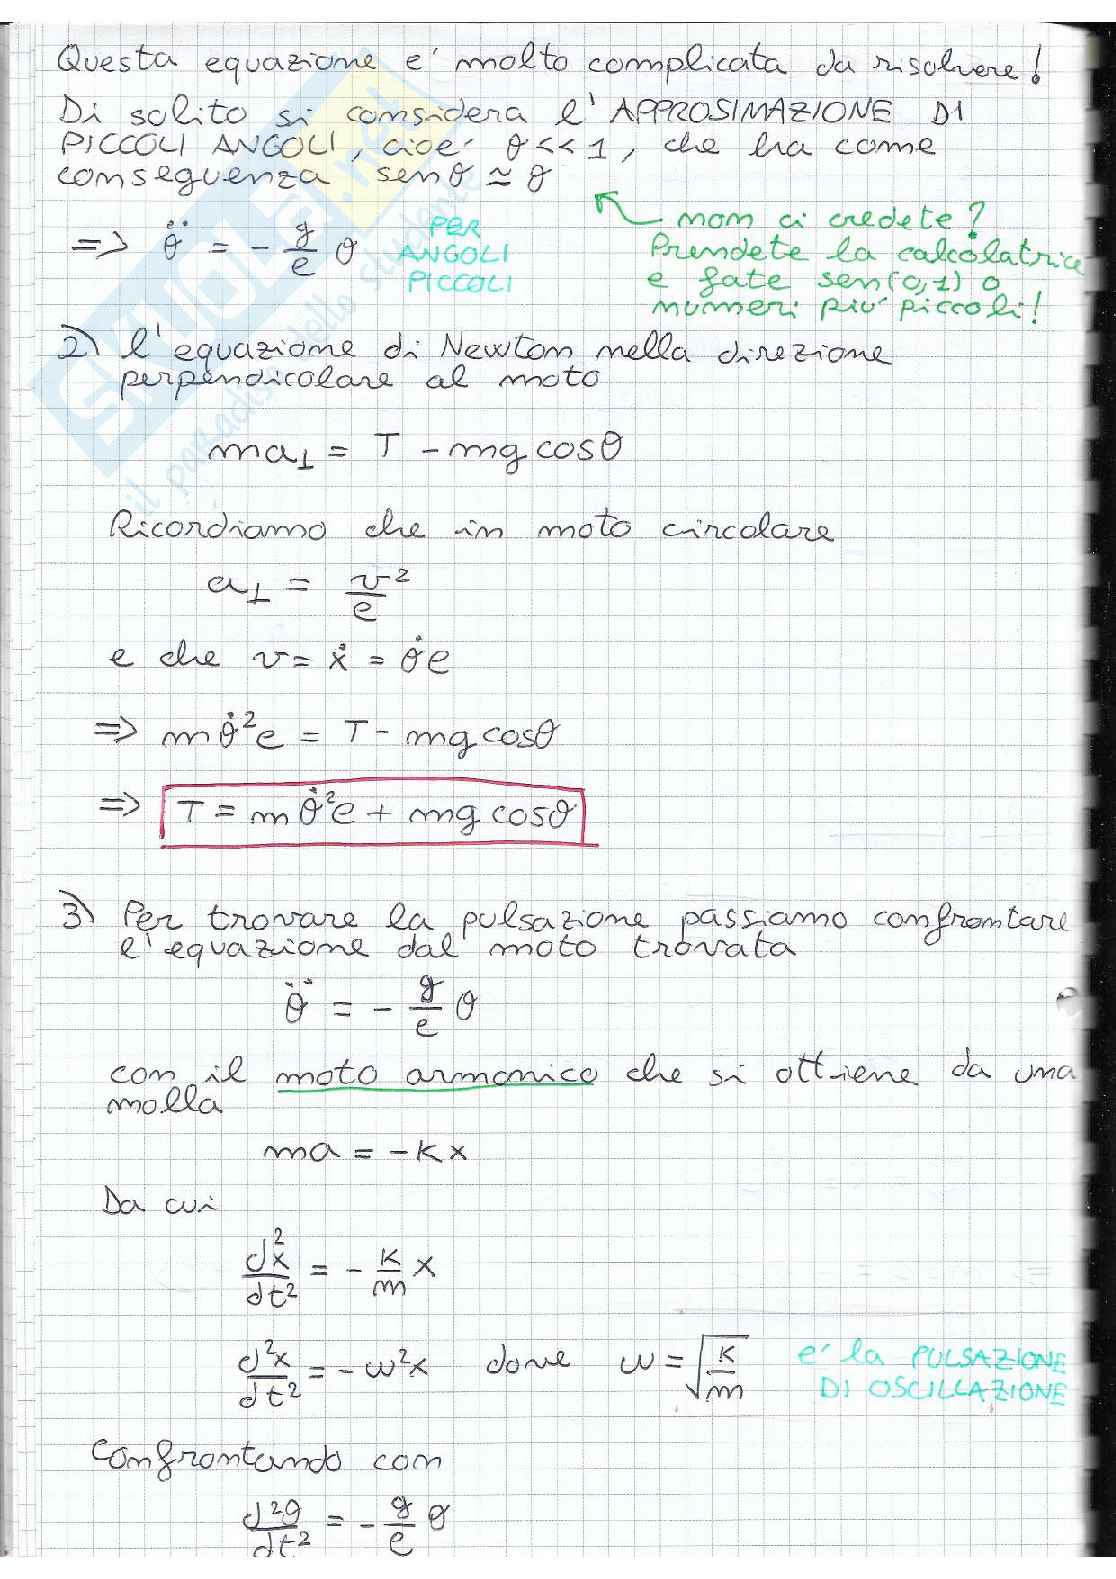 Questa equazione e' molto complicata da risolvere!
Di solito si considera l'APPROSIMAZIONE DI
PICCOLI ANGOLI, cioe' θ<<1, che ha come
conseguenza senθ ≃ θ
=> θ̈ = - g/l θ PER ANGOLI PICCOLI
non ci credete?
Prendete la calcolatrice
e fate sen(0,1) o
numeri piu' piccoli!
2) l'equazione di Newton nella direzione
perpendicolare al moto
ma⊥ = T - mg cosθ
Ricordiamo che in moto circolare
a⊥ = v²/l
e che v = ẋ = θ̇l
=> mθ̇²l = T - mg cosθ
=> T = mθ̇²l + mg cosθ
3) Per trovare la pulsazione possiamo confrontare
l'equazione dal moto trovata
θ̈ = - g/l θ
con il moto armonico che si ottiene da una
molla
ma = -kx
Da cui
d²x/dt² = - k/m x
d²x/dt² = -ω²x dove ω = √(k/m) e' la PULSAZIONE
DI OSCILLAZIONE
Confrontando con
d²θ/dt² = - g/l θ
SKUOLA.net
il paradiso dello studente